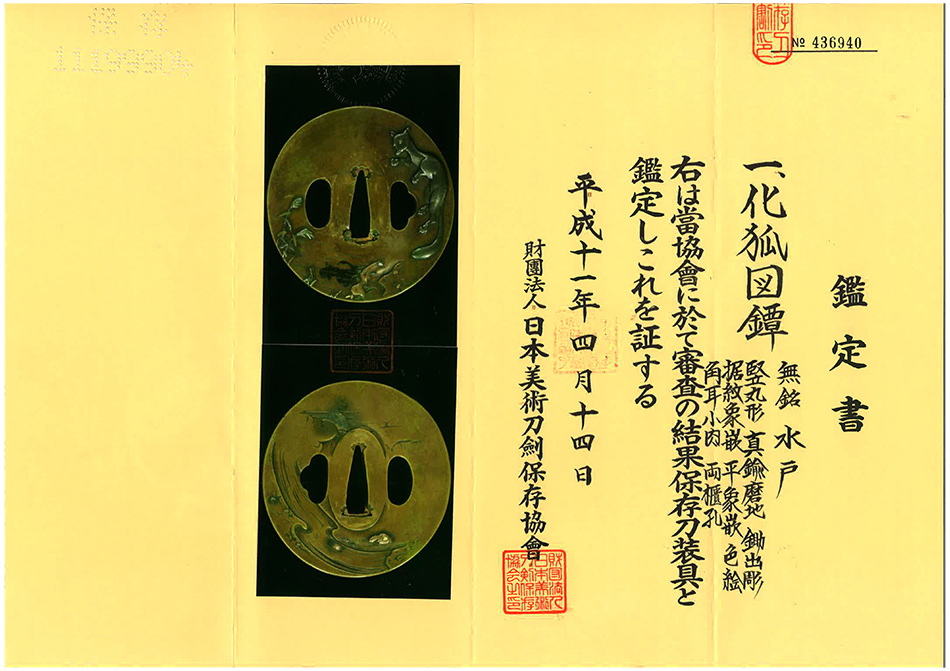 保存
11199904
№ 436940
鑑定書
一、化狐図鐔
無銘 水戸
竪丸形 真鍮磨地 鋤出彫
据紋象嵌 平象嵌 色絵
角耳小肉 両櫃孔
右は當協會に於て審査の結果保存刀装具と
鑑定しこれを証する
平成十一年四月十四日
財團法人 日本美術刀劍保存協會